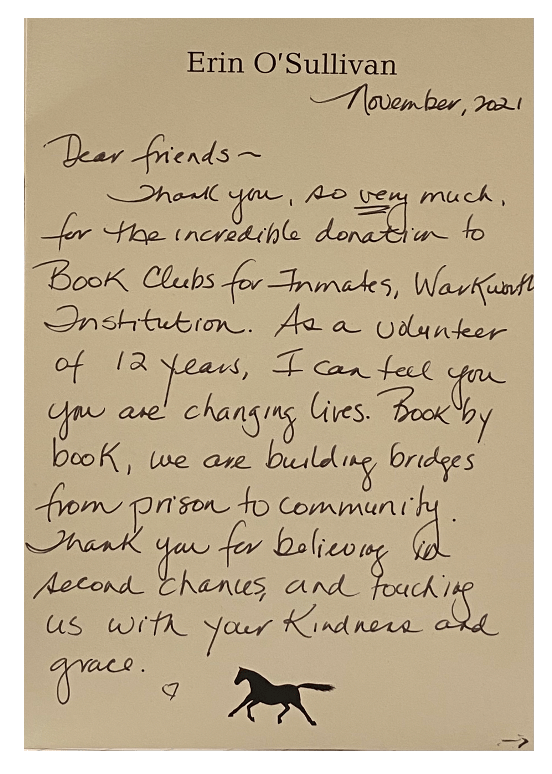 Erin O'Sullivan
November, 2021
Dear friends ~
Thank you, so very much,
for the incredible donation to
Book Clubs for Inmates, Warkworth
Institution. As a volunteer
of 12 years, I can tell you
you are changing lives. Book by
book, we are building bridges
from prison to community.
Thank you for believing in
second chances, and touching
us with your kindness and
grace. ♡
→